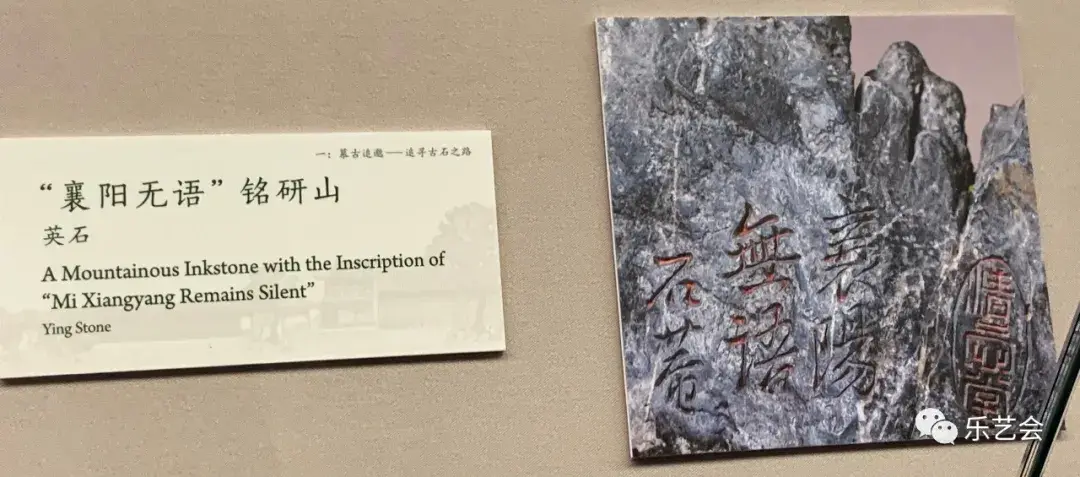 一：慕古——追寻古石之路
“襄阳无语”铭研山
英石
A Mountainous Inkstone with the Inscription of
“Mi Xiangyang Remains Silent”
Ying Stone
襄陽
無語
石菴
乐艺会